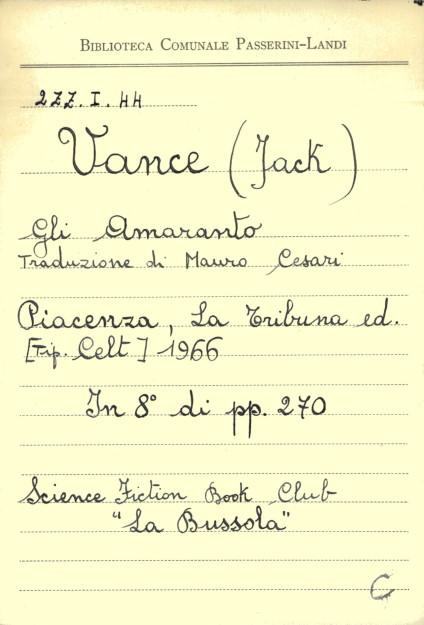 Biblioteca Comunale Passerini-Landi
2ZZ. I. 44
Vance (Jack)
Gli Amaranto
Traduzione di Mauro Cesari
Piacenza, La Tribuna ed.
[Tip. Celt] 1966
In 8° di pp. 270
Science Fiction Book Club
"La Bussola"
C